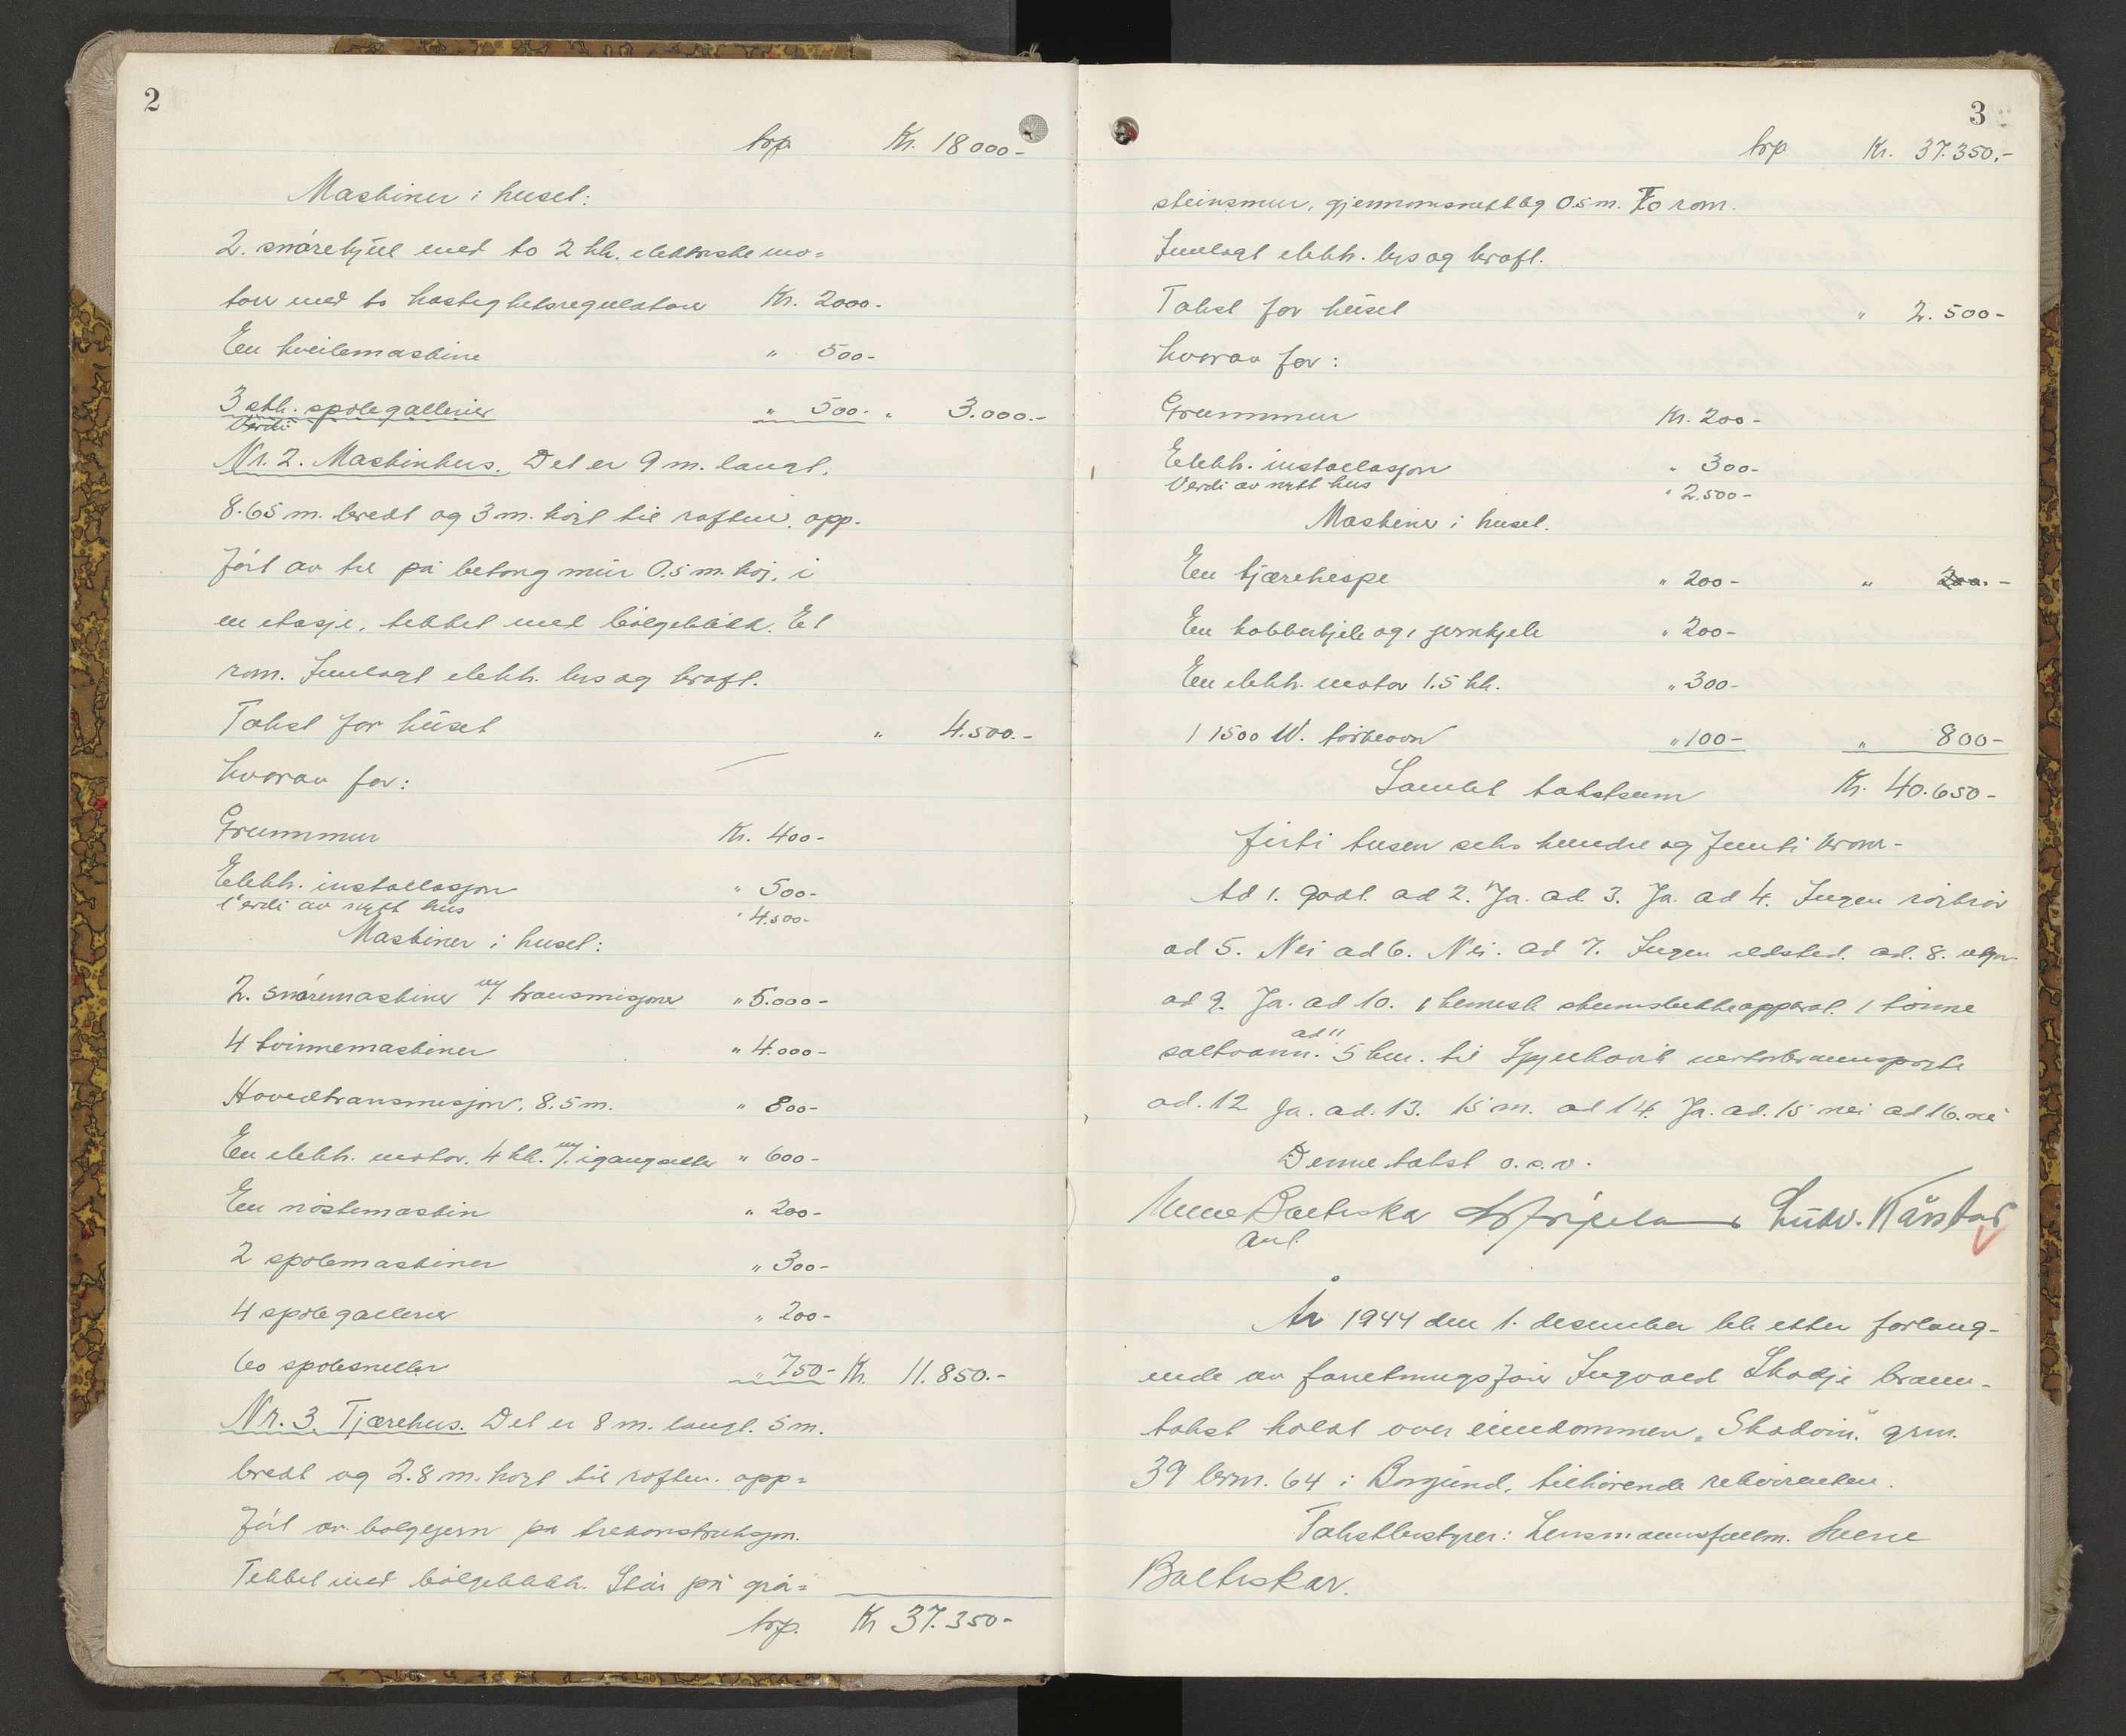 2
trp. Kr. 18000-
Maskiner i huset:
2. snórehjul med to 2 hk. elektriske mo=
torer med to hastighetsregulatorer Kr. 2000-
En kveilemaskine " 500-
3 stk. spolegallerier " 500- " 3.000.-
Verdi
Nr. 2. Maskinhus. Det er 9 m. langt,
8.65 m. bredt og 3 m. høgt til raftene, opp-
fórt av tre på betong mur 0.5 m. høj, i
en etasje, tekket med bølgeblikk. Et
rom. Innlagt elektr. lys og kraft.
Takst for húset " 4.500.-
hvorav for:
Grunnmur Kr. 400-
Elektr. installasjon " 500-
Verdi av nytt hus " 4.500-
Maskiner i huset:
2. snóremaskiner m/ transmisjoner " 5.000-
4 tvinnemaskiner " 4.000-
Hovedtransmisjon, 8.5 m. " 800-
En elektr. motor. 4 hk. m/. igangsetter " 600-
En nøstemaskin " 200-
2 spolemaskiner " 300-
4 spolegallerier " 200-
60 spolesneller " 750- Kr. 11.850.-
Nr. 3. Tjærehus. Det er 8 m. langt. 5 m.
bredt og 2.8 m. høgt til raften. opp=
fórt av bølgejern på trekonstruksjon.
Tekket med bølgeblikk. Står på grå=
trp. Kr 37.350-
3
trp Kr. 37.350.-
steinsmur, gjennomsnittlig 0.5 m. To rom.
Innlagt elektr. lys og kraft.
Takst for húset " 2.500-
hvorav for:
Grunnmur Kr. 200-
Elektr. installasjon " 300-
Verdi av nytt hus " 2.500-
Maskiner i huset.
En tjærehespe " 200- " 200.-
En kobberkjele og 1 jernkjele " 200-
En elektr. motor 1.5 hk. " 300-
1 1500 W. tørkeovn " 100- " 800-
Samlet takstsum Kr. 40.650-
førti tusen seks hundre og femti kroner-
Ad 1. godt. ad 2. Ja. ad 3. Ja. ad 4. Ingen
ad 5. Nei ad 6. Nei. ad 7. Ingen ildsted. ad. 8.
ad 9. Ja. ad 10. 1 kemisk slukkeapparat. 1 tønne
saltvann. ad 11 5 km. til motorbrannsprøite
ad. 12 Ja. ad. 13. 15 m. ad 14. Ja. ad. 15 nei ad 16. nei
Denne takst o.s.v.
Balteskar Ludv. Kårstad
anf.
År 1944 den 1. desember ble etter forlang-
ende av forretningsfører Ingvald Skodje brann-
takst holdt over eiendommen "Skodvin" grm.
39 brm. 64 i Borgund, tilhørende rekvirenten.
Takstbestyrer: Lensmannsfullm.
Balteskar.